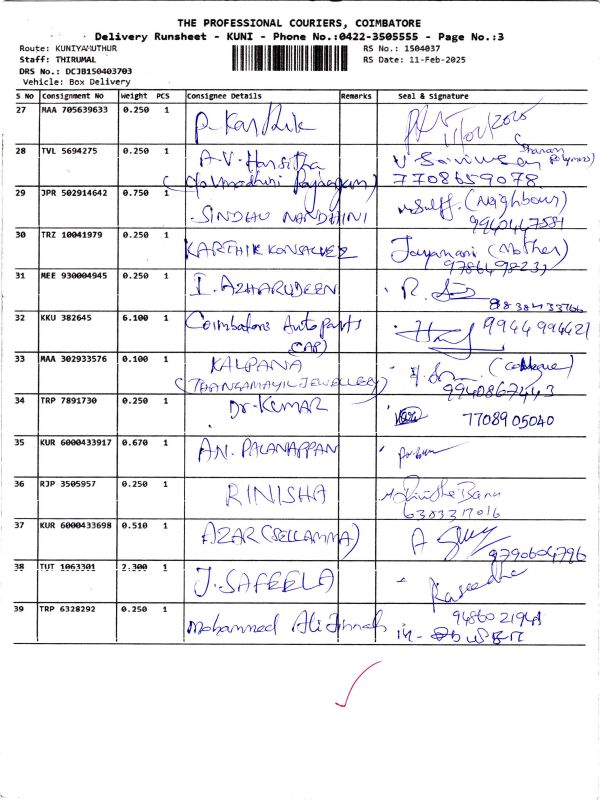 THE PROFESSIONAL COURIERS, COIMBATORE
Delivery Runsheet - KUNI - Phone No.:0422-3505555 - Page No.:3
Route: KUNIYAMUTHUR
RS No.: 1504037
Staff: THIRUMAL
RS Date: 11-Feb-2025
DRS No.: DCJB150403703
Vehicle: Box Delivery
S No Consignment No Weight PCS Consignee Details Remarks Seal & signature
27 MAA 705639633 0.250 1 P. Karthik 11/02/2025
28 TVL 5694275 0.250 1 A.V. Harsitha
7708659078
29 JPR 502914642 0.750 1 SINDHU NANDHINI (Neighbour)
30 TRZ 10041979 0.250 1 KARTHIK Jayamani (Mother)
31 MEE 930004945 0.250 1 I. AZHARUDEEN
32 KKU 382645 6.100 1 Coimbatore Auto Parts 9944994421
(CAP)
33 MAA 302933576 0.100 1 KALPANA
(THANGAMAYIL JEWELLERY) 9940867443
34 TRP 7891730 0.250 1 Dr. KUMAR 7708905040
35 KUR 6000433917 0.670 1 AN. PALANAPPAN
36 RJP 3505957 0.250 1 RINISHA
6383317016
37 KUR 6000433698 0.510 1 AZAR (SELLAMMA) A
9790604796
38 TUT 1063301 2.300 1 J. SAFEELA Raseedha
39 TRP 6328292 0.250 1 Mohammed Ali Jinnah